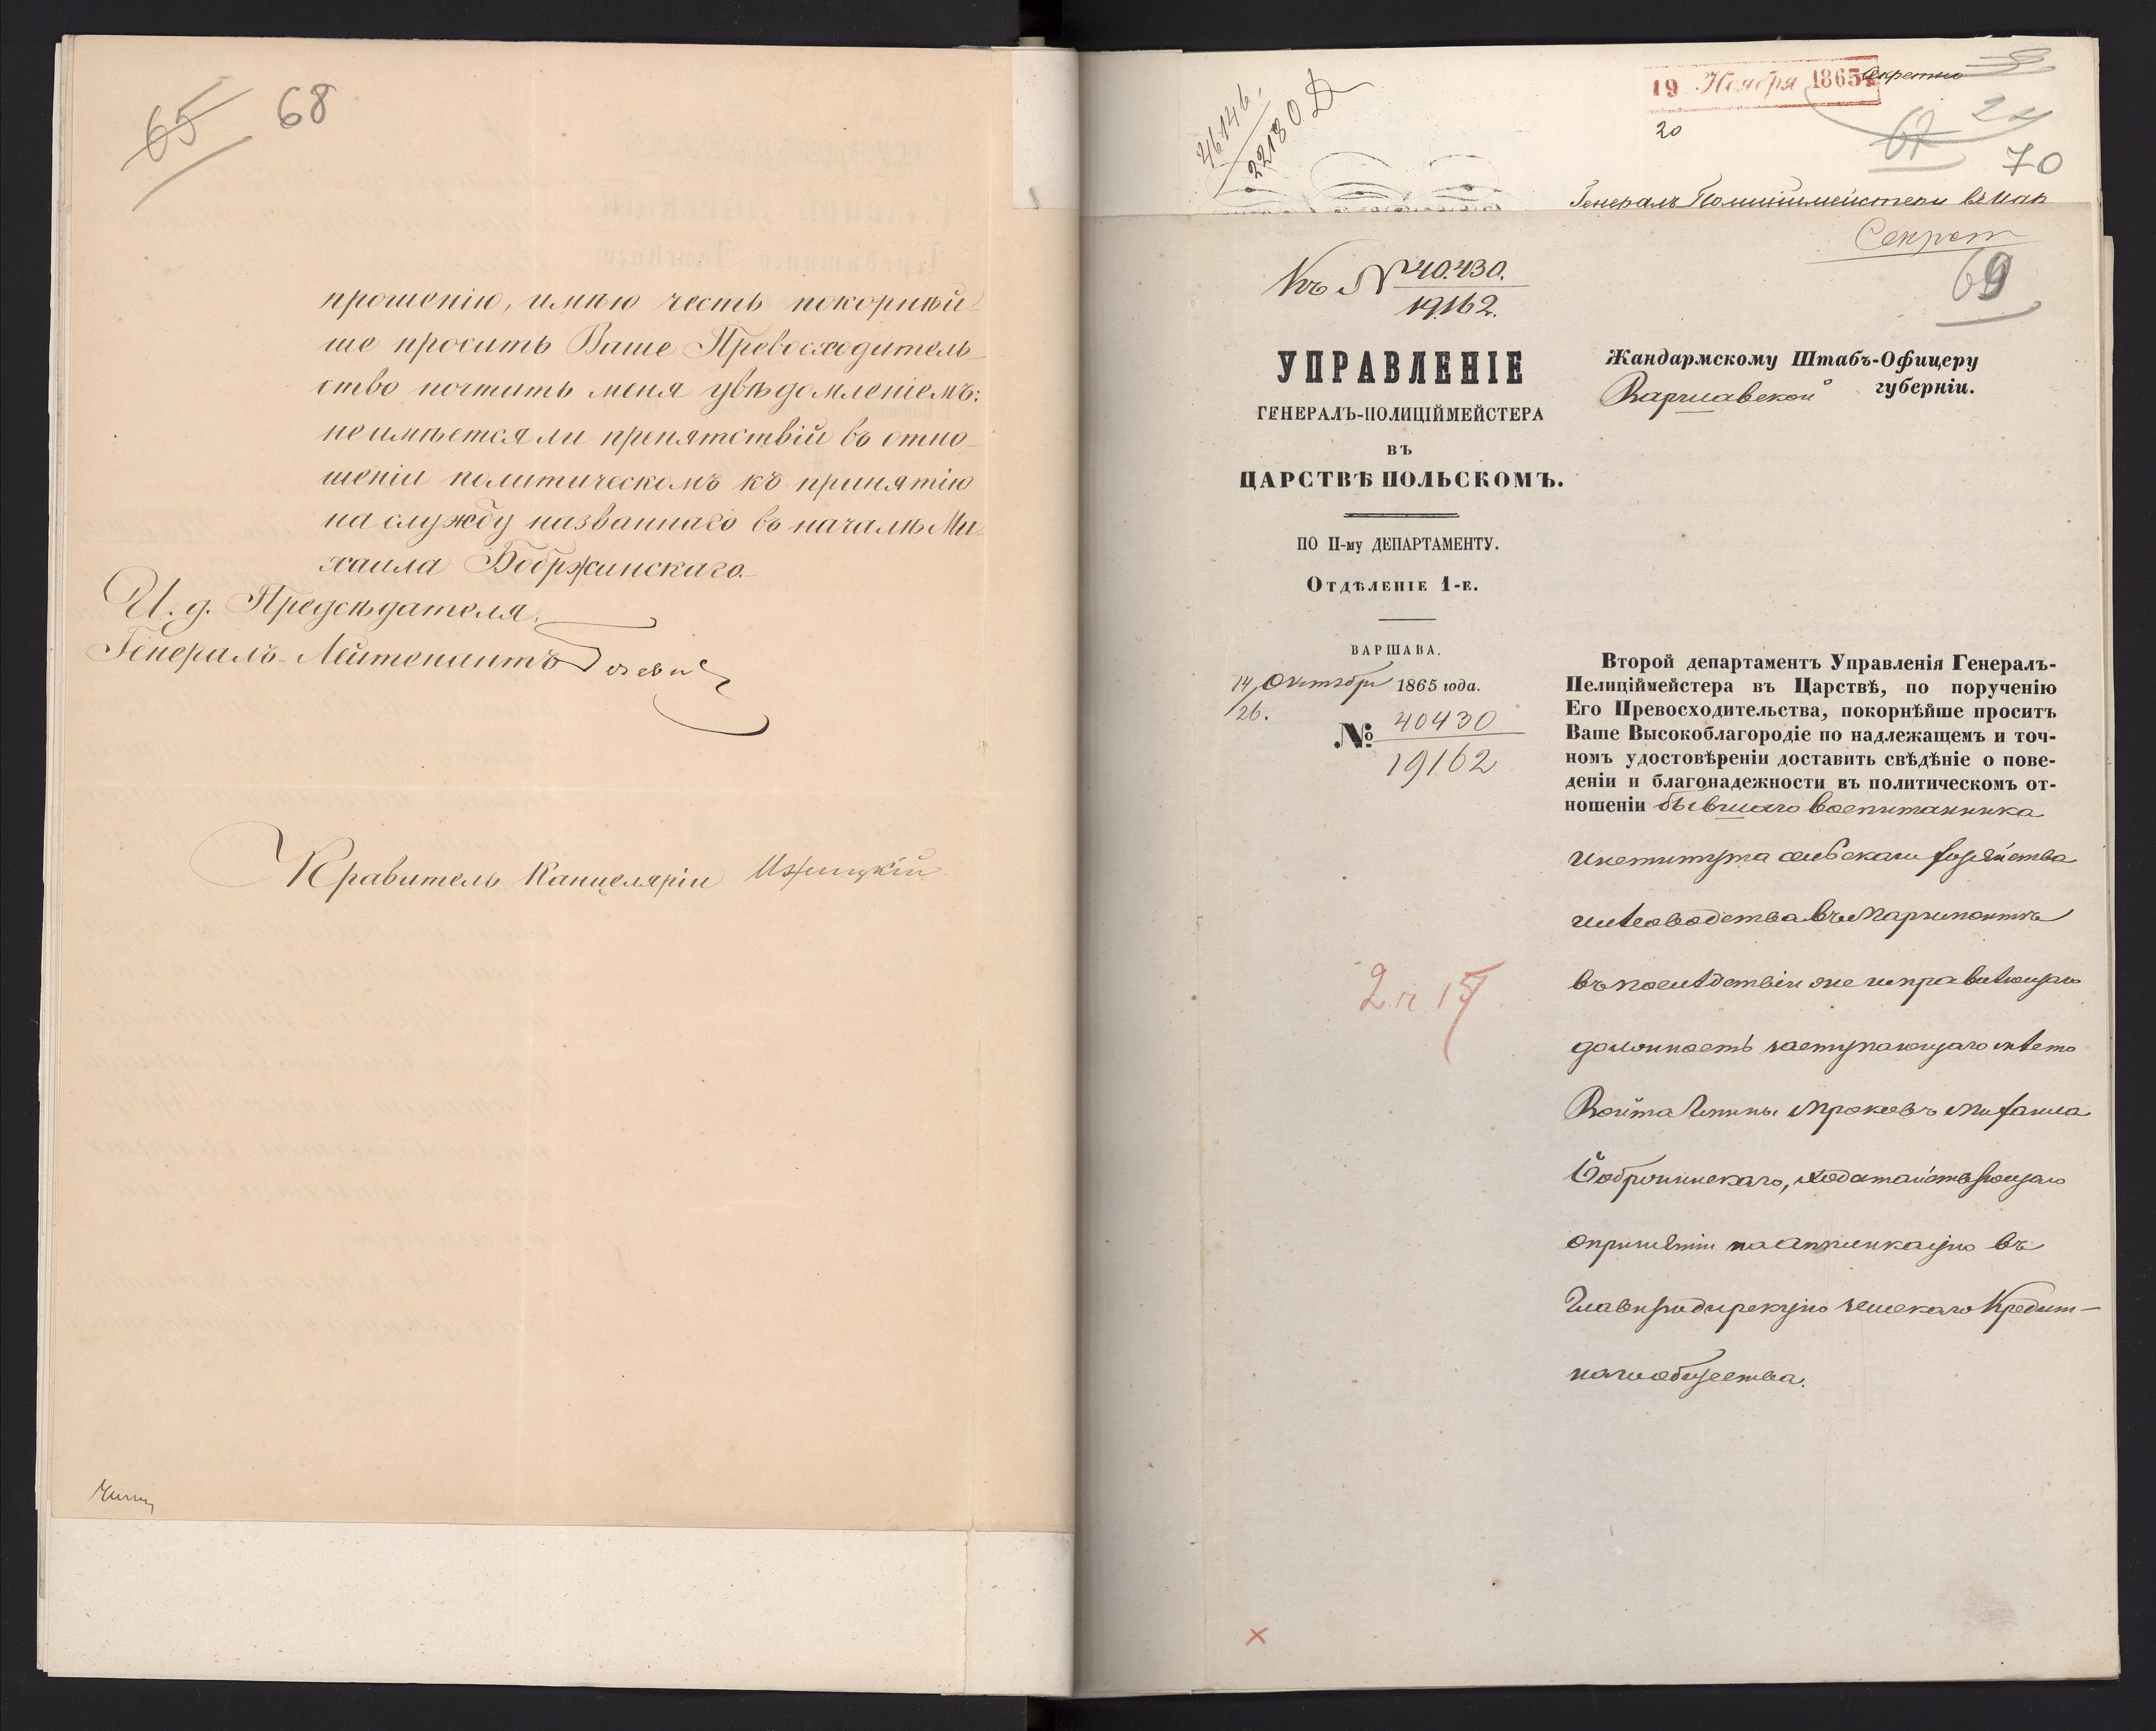 65 68
прошенію, имѣю честь покорнѣй-
ше просить Ваше Превосходитель-
ство почтить меня увѣдомленіемъ:
не имѣется ли препятствій въ отно-
шеніи политическомъ къ принятію
на службу названнаго въ началѣ Ми-
хаила Бобржинскаго.
И. д. Предсѣдателя,
Генералъ-Лейтенантъ
Правитель Канцеляріи
46146.
22180 Д
19 Ноября 1865
Секретно
20
67 24
70
Генералъ Полиціймейстеръ въ Цар
Секрет
69
Къ № 40.430.
19162.
УПРАВЛЕНІЕ
ГЕНЕРАЛЪ-ПОЛИЦІЙМЕЙСТЕРА
ВЪ
ЦАРСТВѢ ПОЛЬСКОМЪ.
ПО II-му ДЕПАРТАМЕНТУ.
Отдѣленіе 1-е.
ВАРШАВА.
14/26. Октября 1865 года.
№ 40430
19162
Жандармскому Штабъ-Офицеру
Варшавской губерніи.
Второй департаментъ Управленія Генералъ-
Пелиціймейстера въ Царствѣ, по порученію
Его Превосходительства, покорнѣйше проситъ
Ваше Высокоблагородіе по надлежащемъ и точ-
номъ удостовѣреніи доставить свѣдѣніе о пове-
деніи и благонадежности въ политическомъ от-
ношеніи бывшаго воспитанника
института сельскаго хозяйства
и лѣсоводства въ Маримонтѣ
въ послѣдствіи же исправляющаго
должность заступающаго мѣсто
Войта Гмины Мроковъ Михаила
Бобржинскаго, ходатайствующаго
о принятіи на аппликацію въ
Главную дирекцію земскаго Кредит-
наго общества.